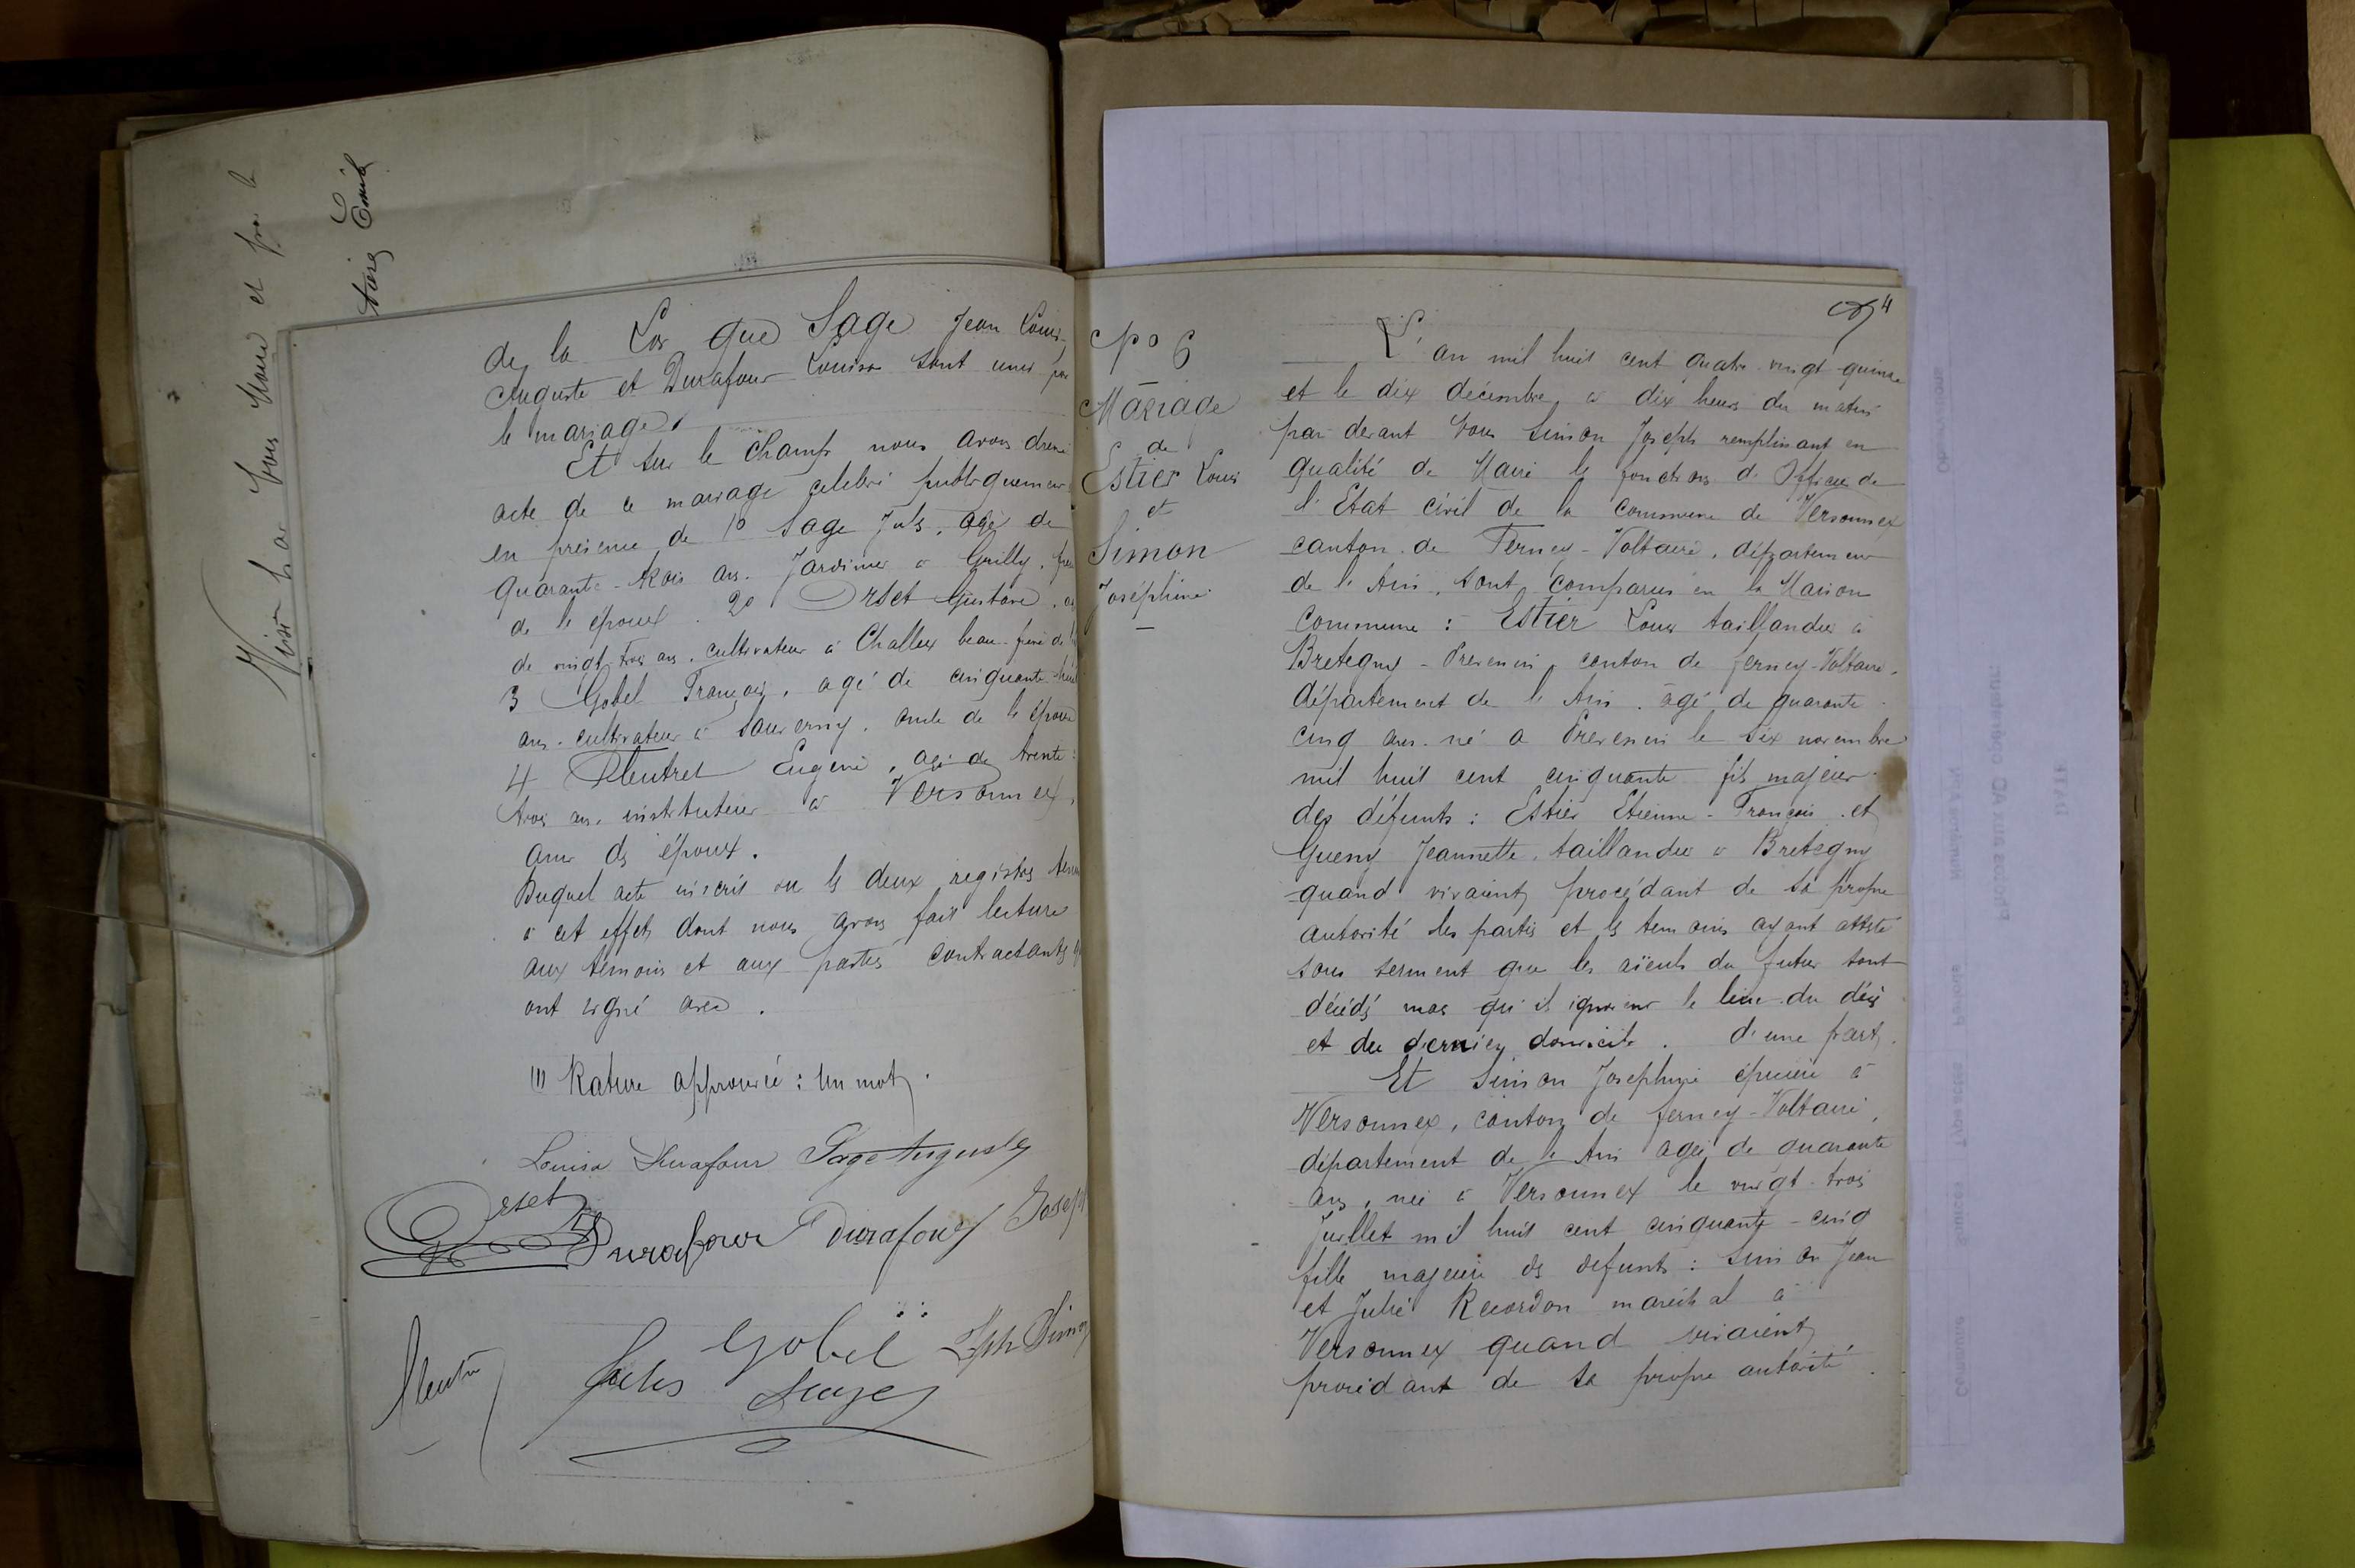 de la Loi que Sage Jean Louis
Auguste et Durafour Louisa sont unis par
le mariage.
Et sur le champ nous avons dressé
acte de ce mariage célébré publiquement
en présence de 1º Sage Juls, agé de
quarante-trois ans. Jardinier à Grilly, frère
de le époux. 2º Orset Gustave,
de vingt-trois ans, cultivateur à Challex beau-frère de
3 Gobel François, agé de cinquante-huit
ans. cultivateur à Sauverny. oncle de le épouse
4 Pleutret Eugène, agé de trente-
trois ans, instituteur à Versonnex,
ami ds époux.
Duquel acte inscrit su ls deux registres tenus
à cet effet dont nous avons fait lecture
aux témoins et aux parties contractants
ont signé avec.
(1) Rature approuvée : Un mot.
Louisa Durafour Sage Auguste
Orset Durafour Durafour Joseph
Gobel Jph Simon
Jules Sage
Nº 6
Mariage
de
Estier Louis
et
Simon
Joséphine
4
L'an mil huit cent quatre-vingt-quinze
et le dix décembre, à dix heures du matin
par devant Nous Simon Joseph remplissant en
qualité de Maire le fonctions d'Officier de
l'Etat civil de la commune de Versonnex
canton de Ferney-Voltaire, département
de l'Ain, sont comparus en la Maison
commune : Estier Louis taillandier à
Bretegny-Prevessin, canton de Ferney-Voltaire,
département de l'Ain. agé de quarante-
cinq ans. né a Prevessin le six novembre
mil huit cent cinquante fils majeur
des défunts : Estier Etienne-François et
Gueny Jeannette, taillandier à Bretegny
quand vivaient, procédant de sa propre
autorité les parties et ls témoins ayant attesté
sous serment que les aïeuls du futur sont
décédés mais qu'ils ignorent le lieu du décès
et du dernier domicile. d'une part,
Et Simon Joséphine épicière à
Versonnex, canton de Ferney-Voltaire,
département de l'Ain agée de quarante
ans, née à Versonnex le vingt-trois
Juillet mil huit cent cinquante-cinq
fille majeure ds defunts : Simon Jean
et Julie Recordon maréchal à
Versonnex quand vivaient,
procédant de sa propre autorité.